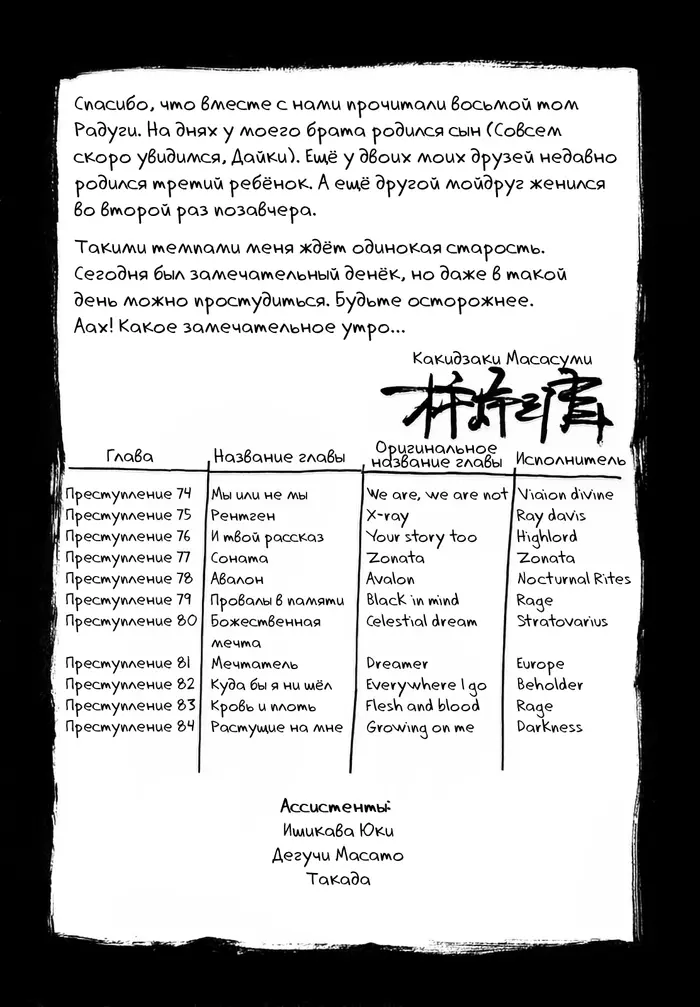 Спасибо, что вместе с нами прочитали восьмой том
Радуги. На днях у моего брата родился сын (Совсем
скоро увидимся, Дайки). Ещё у двоих моих друзей недавно
родился третий ребёнок. А ещё другой мойдруг женился
во второй раз позавчера.
Такими темпами меня ждёт одинокая старость.
Сегодня был замечательный денёк, но даже в такой
день можно простудиться. Будьте осторожнее.
Аах! Какое замечательное утро...
Какидзаки Масасуми
Глава Название главы Оригинальное название главы Исполнитель
Преступление 74 Мы или не мы We are, we are not Viaion divine
Преступление 75 Рентген X-ray Ray davis
Преступление 76 И твой рассказ Your story too Highlord
Преступление 77 Соната Zonata Zonata
Преступление 78 Авалон Avalon Nocturnal Rites
Преступление 79 Провалы в памяти Black in mind Rage
Преступление 80 Божественная мечта Celestial dream Stratovarius
Преступление 81 Мечтатель Dreamer Europe
Преступление 82 Куда бы я ни шёл Everywhere I go Beholder
Преступление 83 Кровь и плоть Flesh and blood Rage
Преступление 84 Растущие на мне Growing on me Darkness
Ассистенты:
Ишикава Юки
Дегучи Масато
Такада